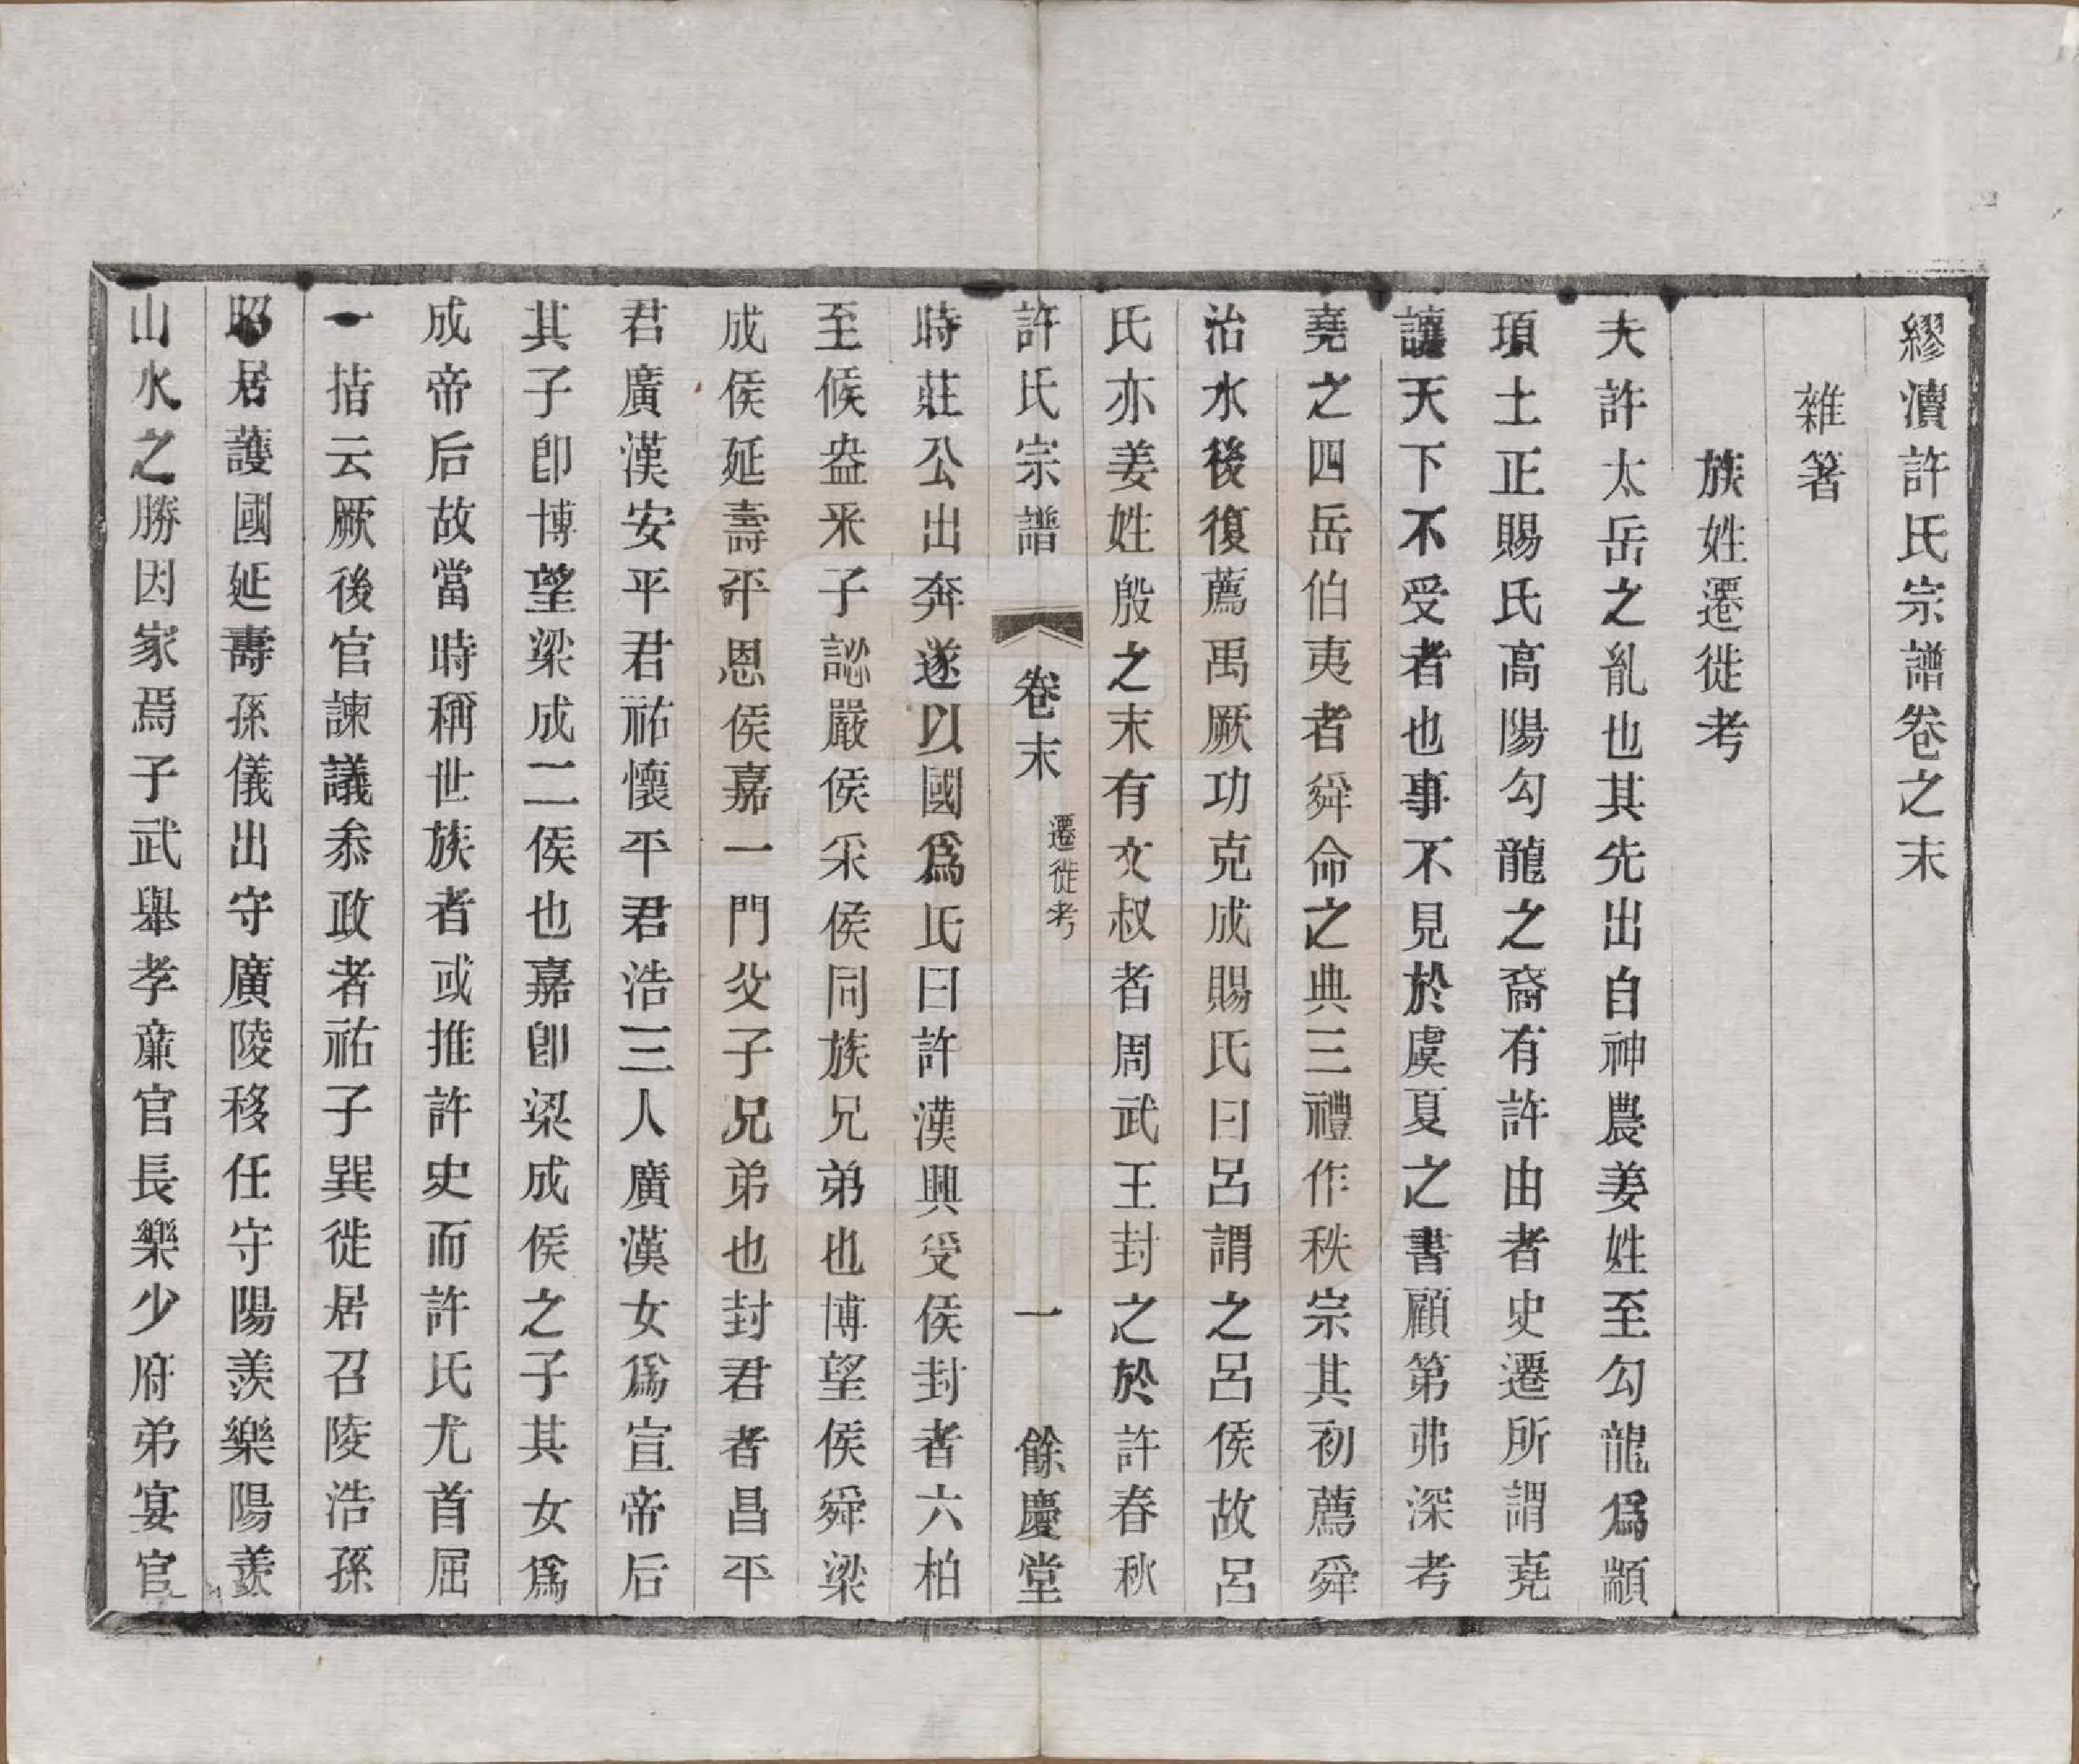 繆瀆許氏宗譜卷之末
雜箸
族姓遷徙考
夫許太岳之亂也其先出自神農姜姓至勾龍爲顓
頊土正賜氏高陽勾龍之裔有許由者史遷所謂堯
讓天下不受者也事不見於虞夏之書顧第弗深考
堯之四岳伯夷者舜命之典三禮作秩宗其初薦舜
治水後復薦禹厥功克成賜氏曰呂謂之呂侯故呂
氏亦姜姓殷之末有文叔者周武王封之於許春秋
許氏宗譜
卷末
遷徙考
一
餘慶堂
時莊公出奔遂以國爲氏曰許漢興受侯封者六柏
至候盎釆子認嚴侯采侯同族兄弟也博望侯舜梁
成侯延壽平恩侯嘉一門父子兄弟也封君者昌平
君廣漢安平君祐懷平君浩三人廣漢女爲宣帝后
其子卽博望梁成二侯也嘉卽梁成侯之子其女爲
成帝后故當時稱世族者或推許史而許氏尤首屈
一指云厥後官諫議叅政者祐子巽徙居召陵浩孫
昭居護國延壽孫儀出守廣陵移任守陽羨樂陽羨
山水之勝因家焉子武舉孝亷官長樂少府弟宴官